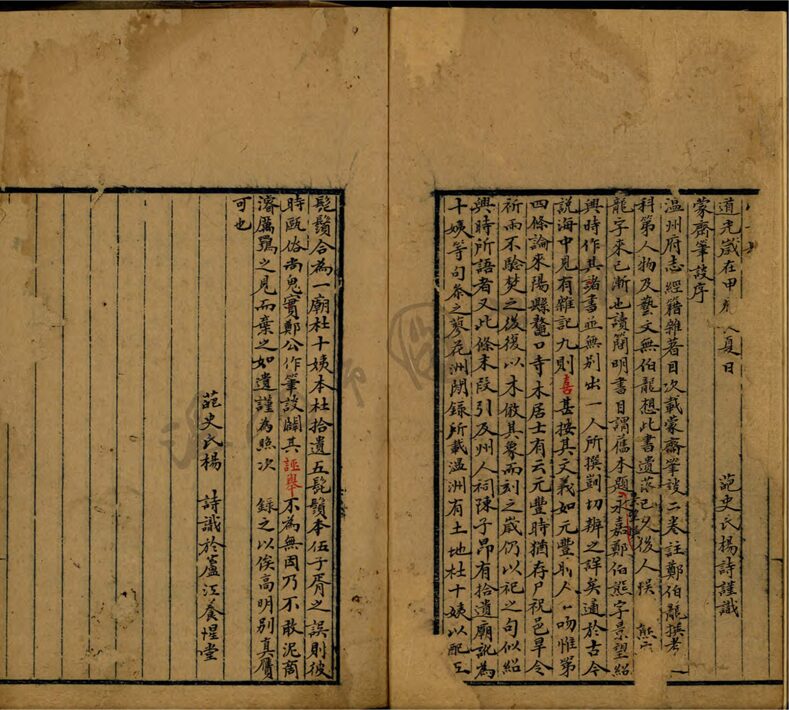 道光歲在甲 夏日 葩史氏楊詩謹識
蒙齋筆談序
温州府志經籍雜著目次載蒙齋筆談二卷註鄭伯熊撰考
科第人物及藝文無伯熊想此書遺落已久後人誤 熊
龍字來已漸也讀簡明書目謂舊本題永嘉鄭伯熊字景望紹
興時作其諸書並無别出一人所撰剴切辨之詳矣適於古今
説海中見有雜記九則喜甚按其文義如元豐 人 吻惟第
四條論來陽縣鼇口寺木居士有云元豐時猶存尸祝邑早令
祈雨不驗焚之後復以木倣其象而刻之歲仍以祀之句似紹
興時所語者又此條末段引及州人祠陳子昂有拾遺廟訛為
十姨等句叅之蓼花洲閒錄所載温洲有土地杜十姨以配五
髭鬚合為一廟杜十姨本杜拾遺五髭鬚本伍子胥之誤則彼
時甌俗尚鬼實鄭公作筆談闢其誣舉不為無因乃不敢泥商
濬厲鶚之見而棄之如遺謹為照次 錄之以俟高明别真贋
可也
葩史氏楊 詩識於蘆江養惺堂